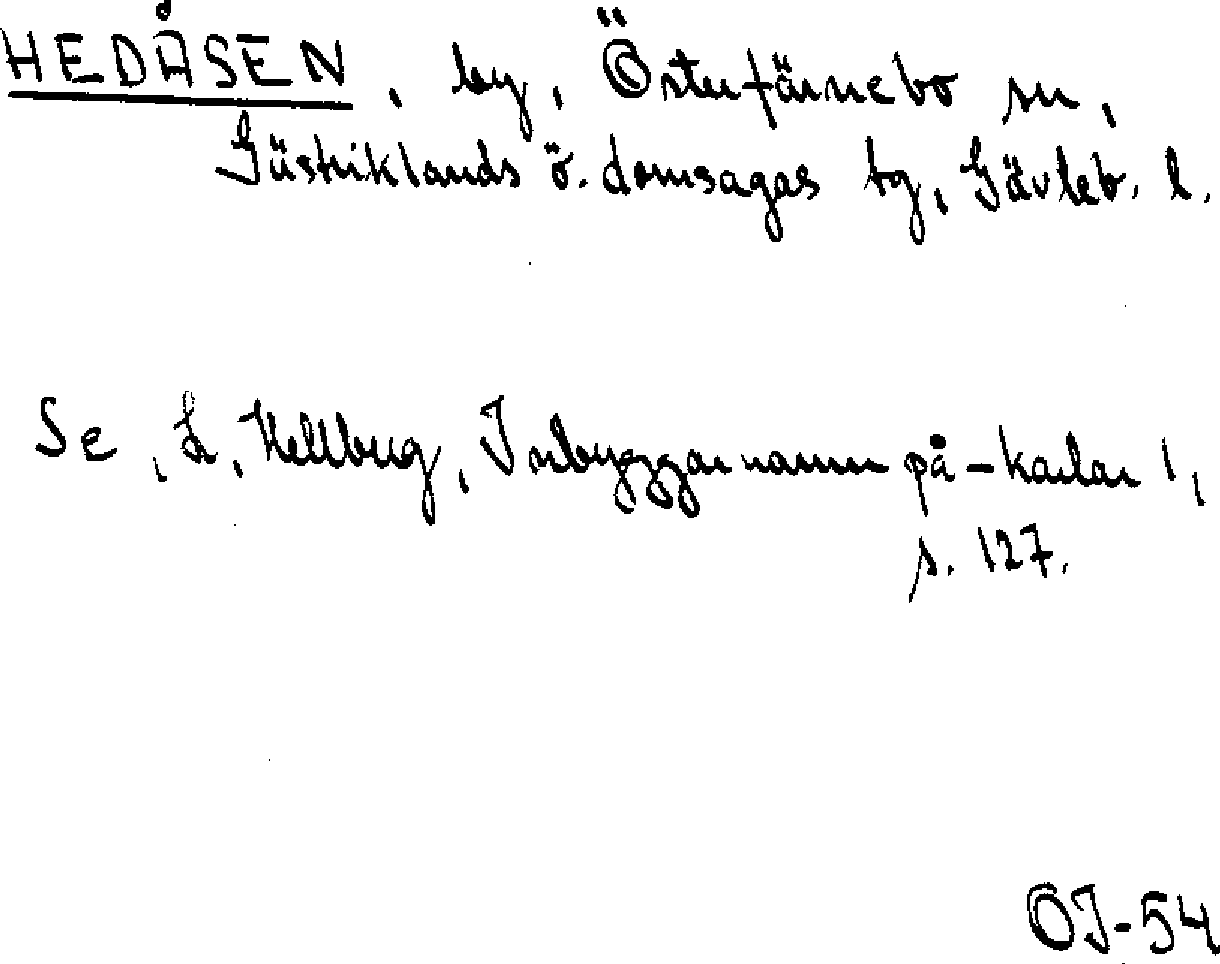 HEDÅSEN, by, Österfärnebo sn,
Gästriklands ö. domsagas tg, Gävleb. l.
Se, L. Hellberg, Inbyggarnamn på -karlar 1,
s. 127.
OJ-54